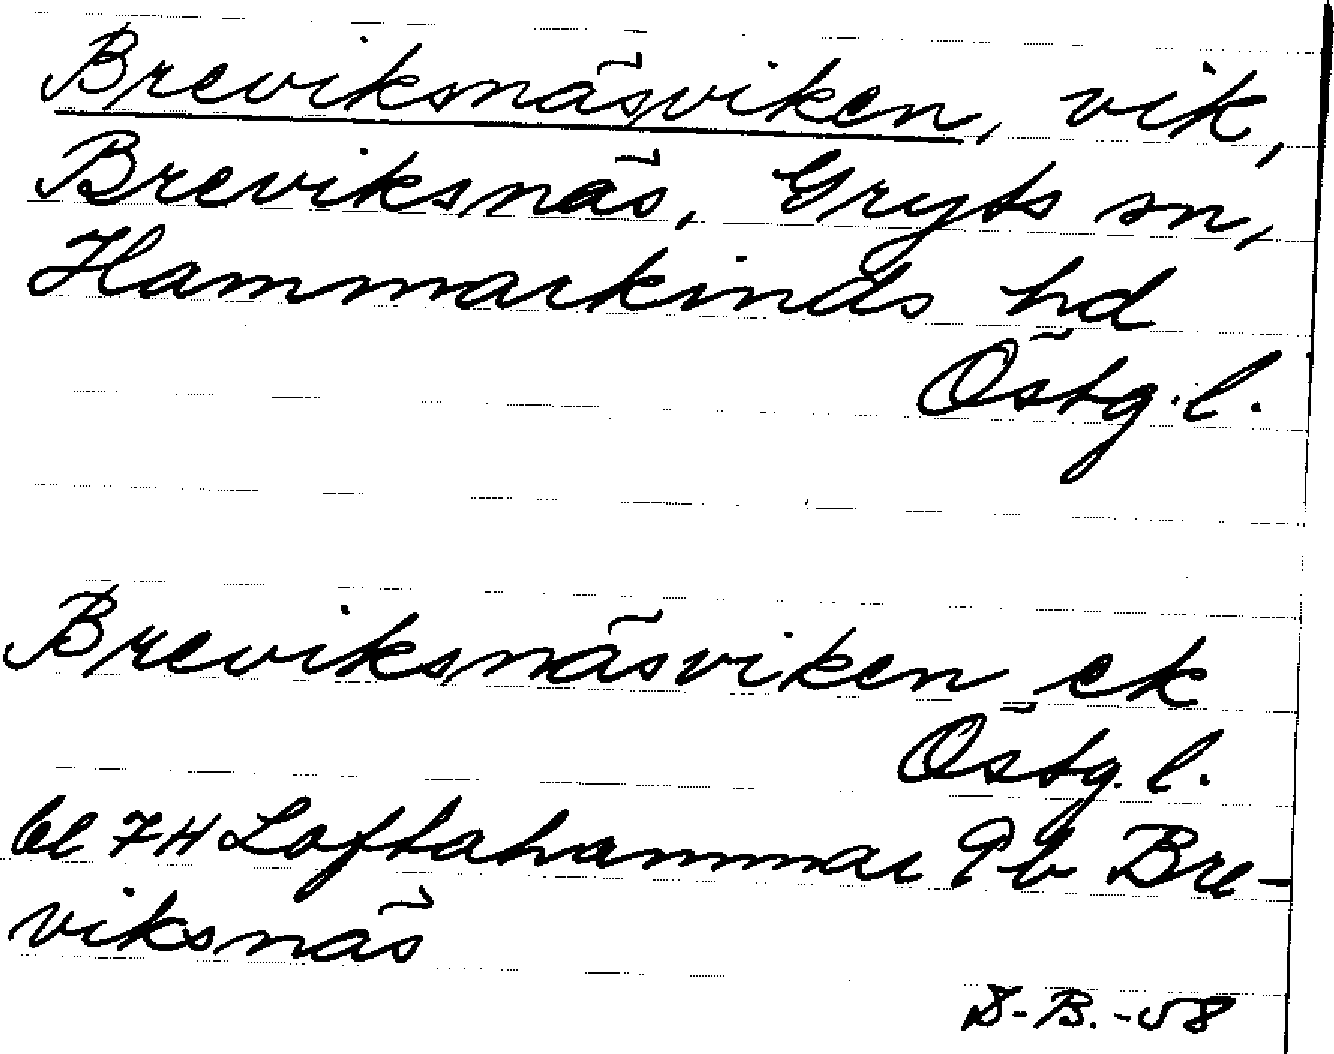 Breviksnäsviken, vik,
Breviksnäs, Gryts sn,
Hammarkinds hd
Östg. l.
Breviksnäsviken ek
Östg. l.
bl 7H Loftahammar 9b Bre-
viksnäs
B. -58